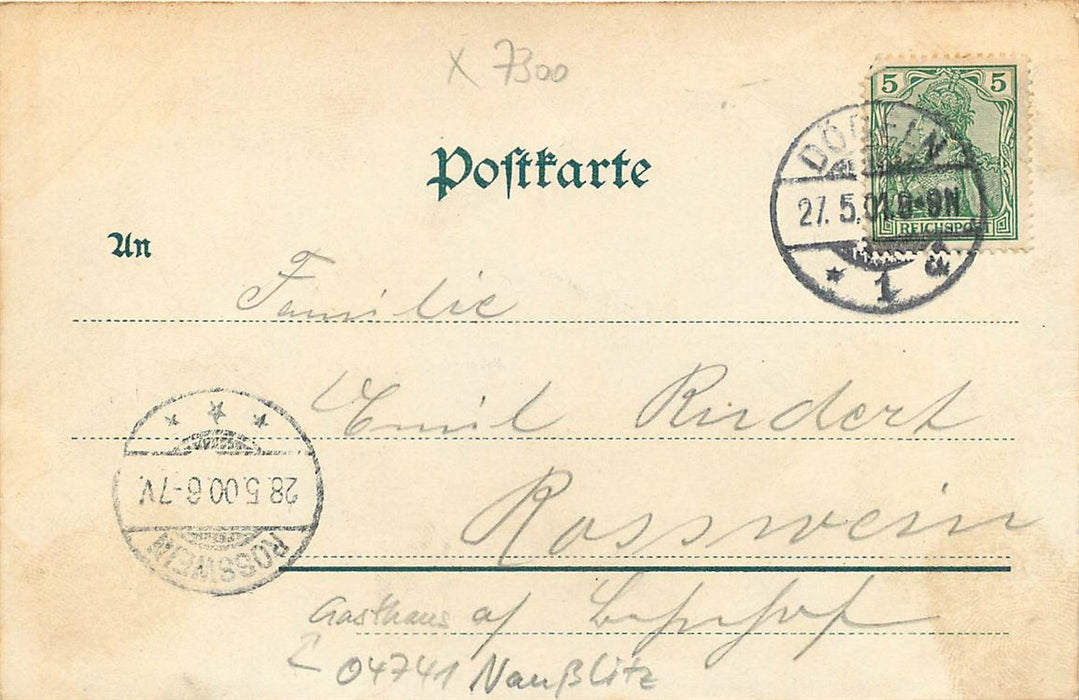 X 7300
5 5
DÖBELN
27.5.01.8-9N
REICHSPOST
* 1 a
Postkarte
An
Familie
Emil Rindert
Rosswein
ROSSWEIN
28.5.00 6-7V.
Gasthaus a/
04741 Naußlitz